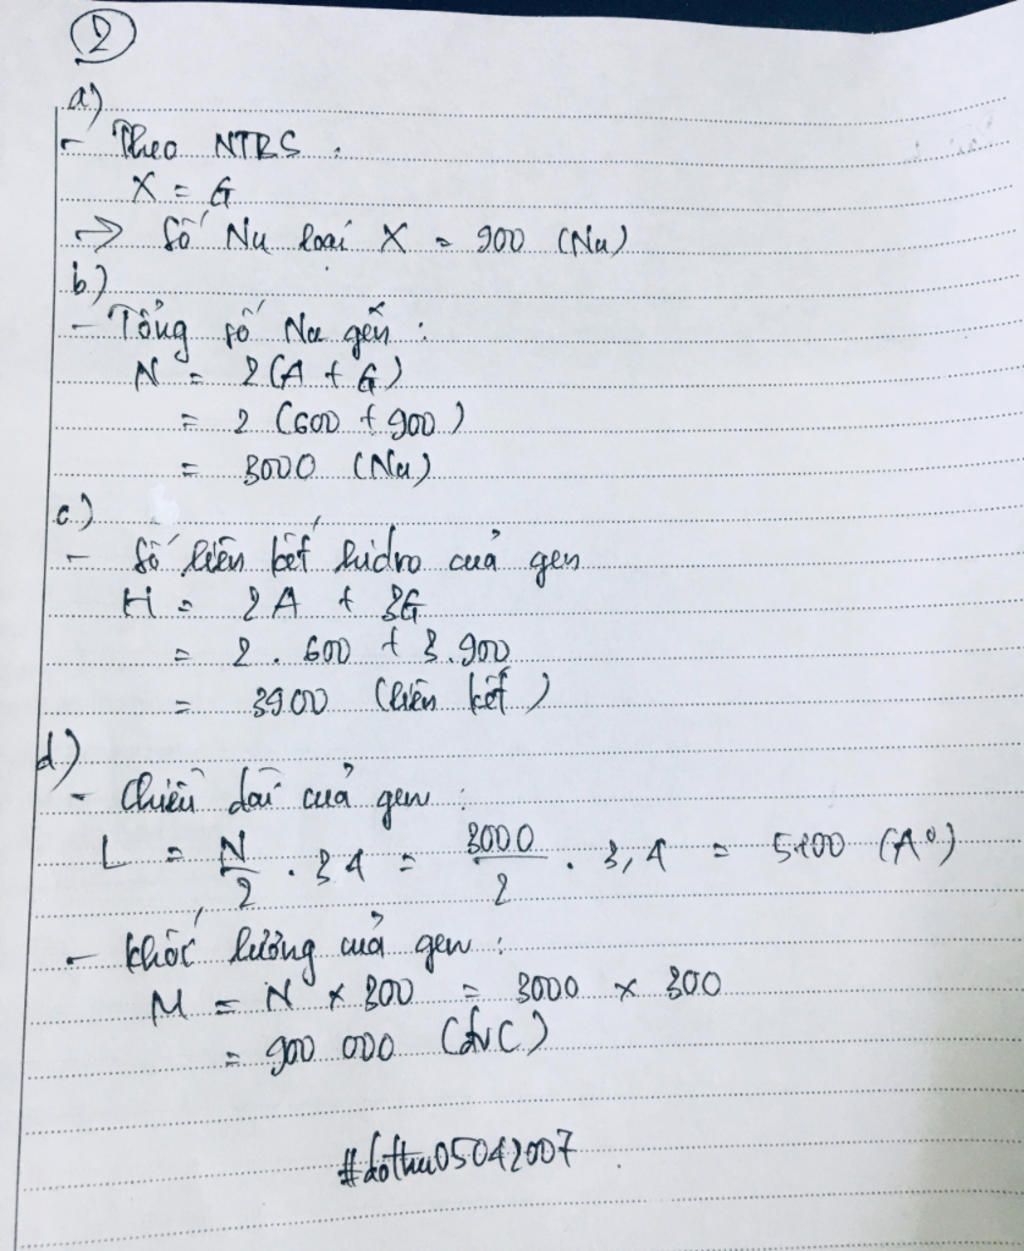 2
a)
- Theo NTBS :
X = G
→ Số Nu loại X = 900 (Nu)
b)
- Tổng số Nu gen :
N = 2(A + G)
= 2 (600 + 900)
= 3000 (Nu)
c)
- Số liên kết hidro của gen
H = 2A + 3G
= 2 . 600 + 3.900
= 3900 (liên kết)
d)
- Chiều dài của gen :
L = N/2 . 3,4 = 3000/2 . 3,4 = 5100 (A⁰)
- Khối lượng của gen :
M = N × 300 = 3000 × 300
= 900 000 (đvC)
#dothu05042007